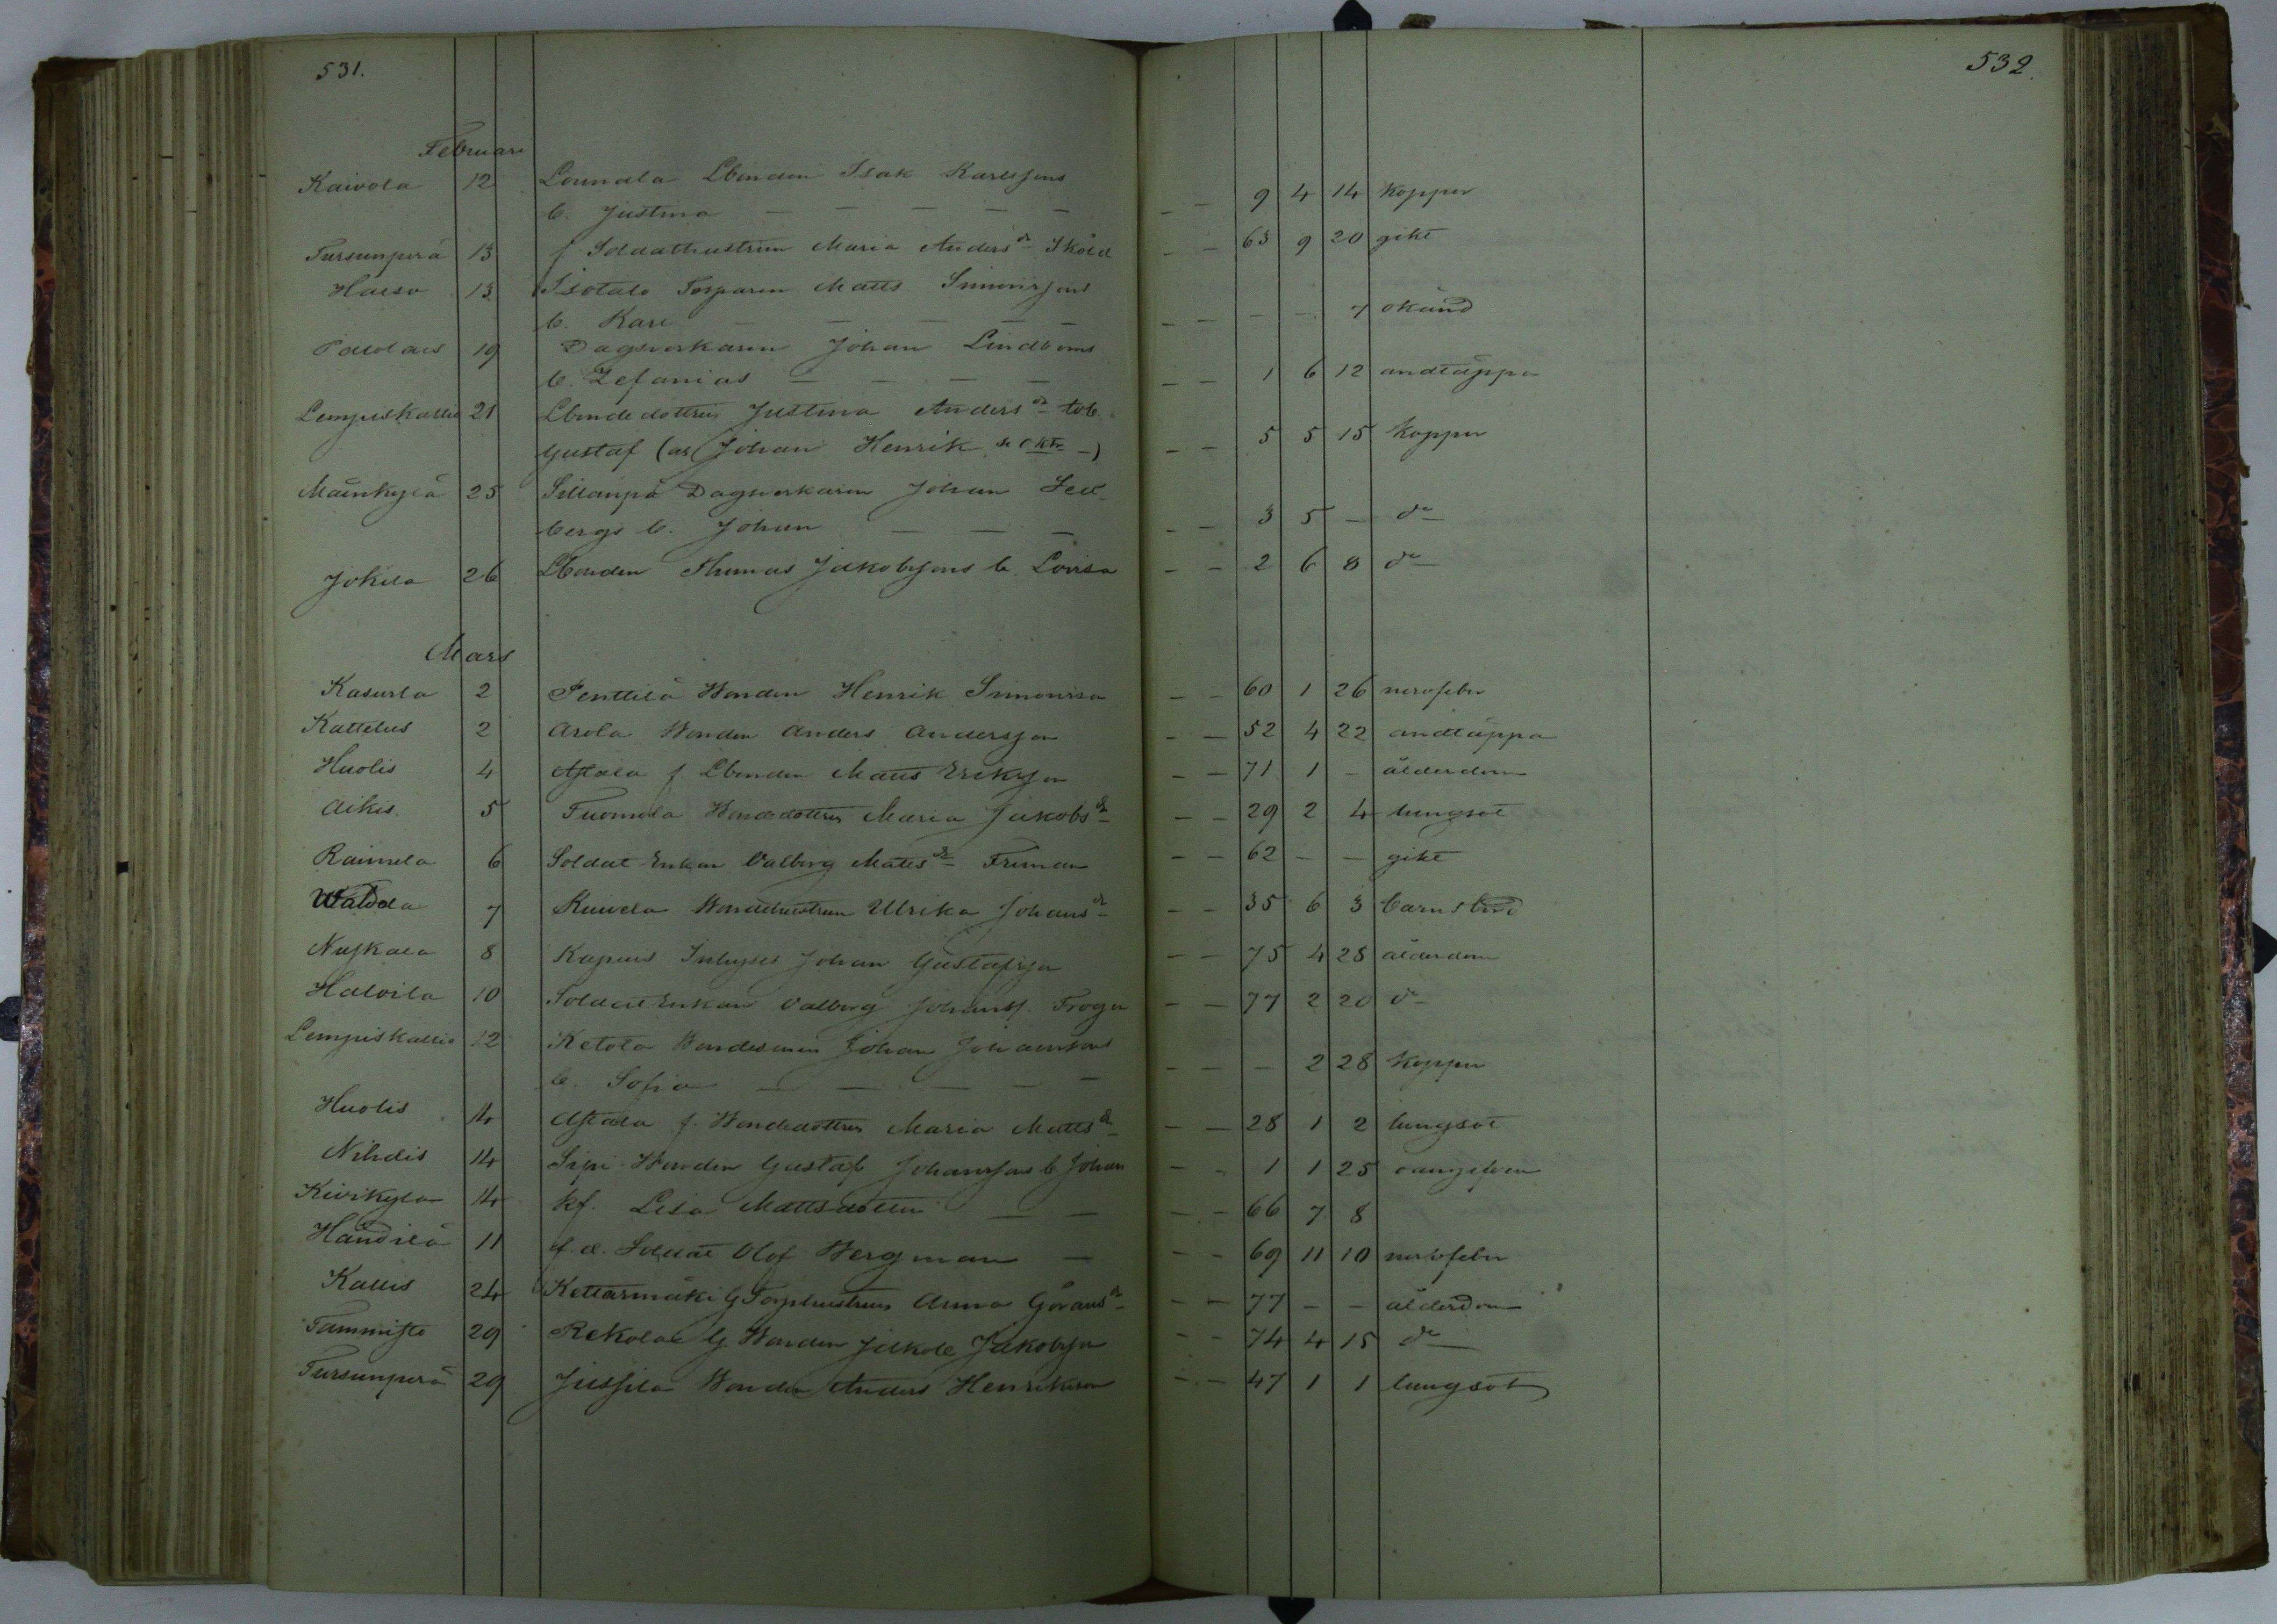 531.
532.
Februari
Kaivola 12 Lbonden Isak Karlssons
b. Justina — — — — — — — 9 4 14 koppor
Tursunperä 13 f. Soldathustrun Maria Andersdr Sköld — — 63 9 20 gikt
13 Isotalo Torparen Matts Simonssons
b. Karl — — — — — — — — — 7 okänd
19 Dagsverkaren Johan Lindboms
b. Zefanias — — — — — — 1 6 12 andtäppa
Lempiskallio 21 Lbondedottren Justina Andersdr to b.
Gustaf (as Johan Henrik —) — — 5 5 15 koppor
25 Sillanpä Dagsverkaren Johan
bergs b. Johan — — — — — 3 5 — do
Jokela 26 Lbonden Thomas Jakobssons b. Lovisa — — 2 6 8 do
Mars
Kasurla 2 Penttilä Bonden Henrik Simonsson — — 60 1 26 nervfeber
Kattelus 2 Arola Bonden Anders Andersson — — 52 4 22 andtäppa
Huolis 4 f. Lbonden Matts Eriksson — — 71 1 — ålderdom
Aikis. 5 Tuomola Bondedottren Maria Jakobsdr — — 29 2 4 lungsot
Raimela 6 Soldat Enkan Valborg Mattsdr Friman — — 62 — — gikt
7 Bondehustrun Ulrika Johansdr — — 35 6 3 barnsbörd
8 Inhyses Johan Gustafsson — — 75 4 28 ålderdom
10 Soldat Enkan Valborg Johansd. — — 77 2 20 do
Lempiskallio 12 Ketola Bondesonen Johan Johanssons
b. Sofia — — — — — — — — 2 28 koppor
Huolis 14 f. Bondedottren Maria Mattsdr — — 28 1 2 lungsot
Nihdis 14 Bonden Gustaf Johanssons b. Johan — — 1 1 25 oangifven
Kivikylä 14 kf. Lisa Mattsdotter — — — — 66 7 8
Handilä 11 f. d. Soldat Olof Bergman — — — 69 11 10 nervfeber
Kallis 24 Kettarmäki G Torphustrun Anna Göransdr — — 77 — — ålderdom
Tammisto 29 Rekola G Bonden Jakob Jakobsson — — 74 4 15 do
Tursunperä 29 Jussila Bonden Anders Henriksson — — 47 1 1 lungsot